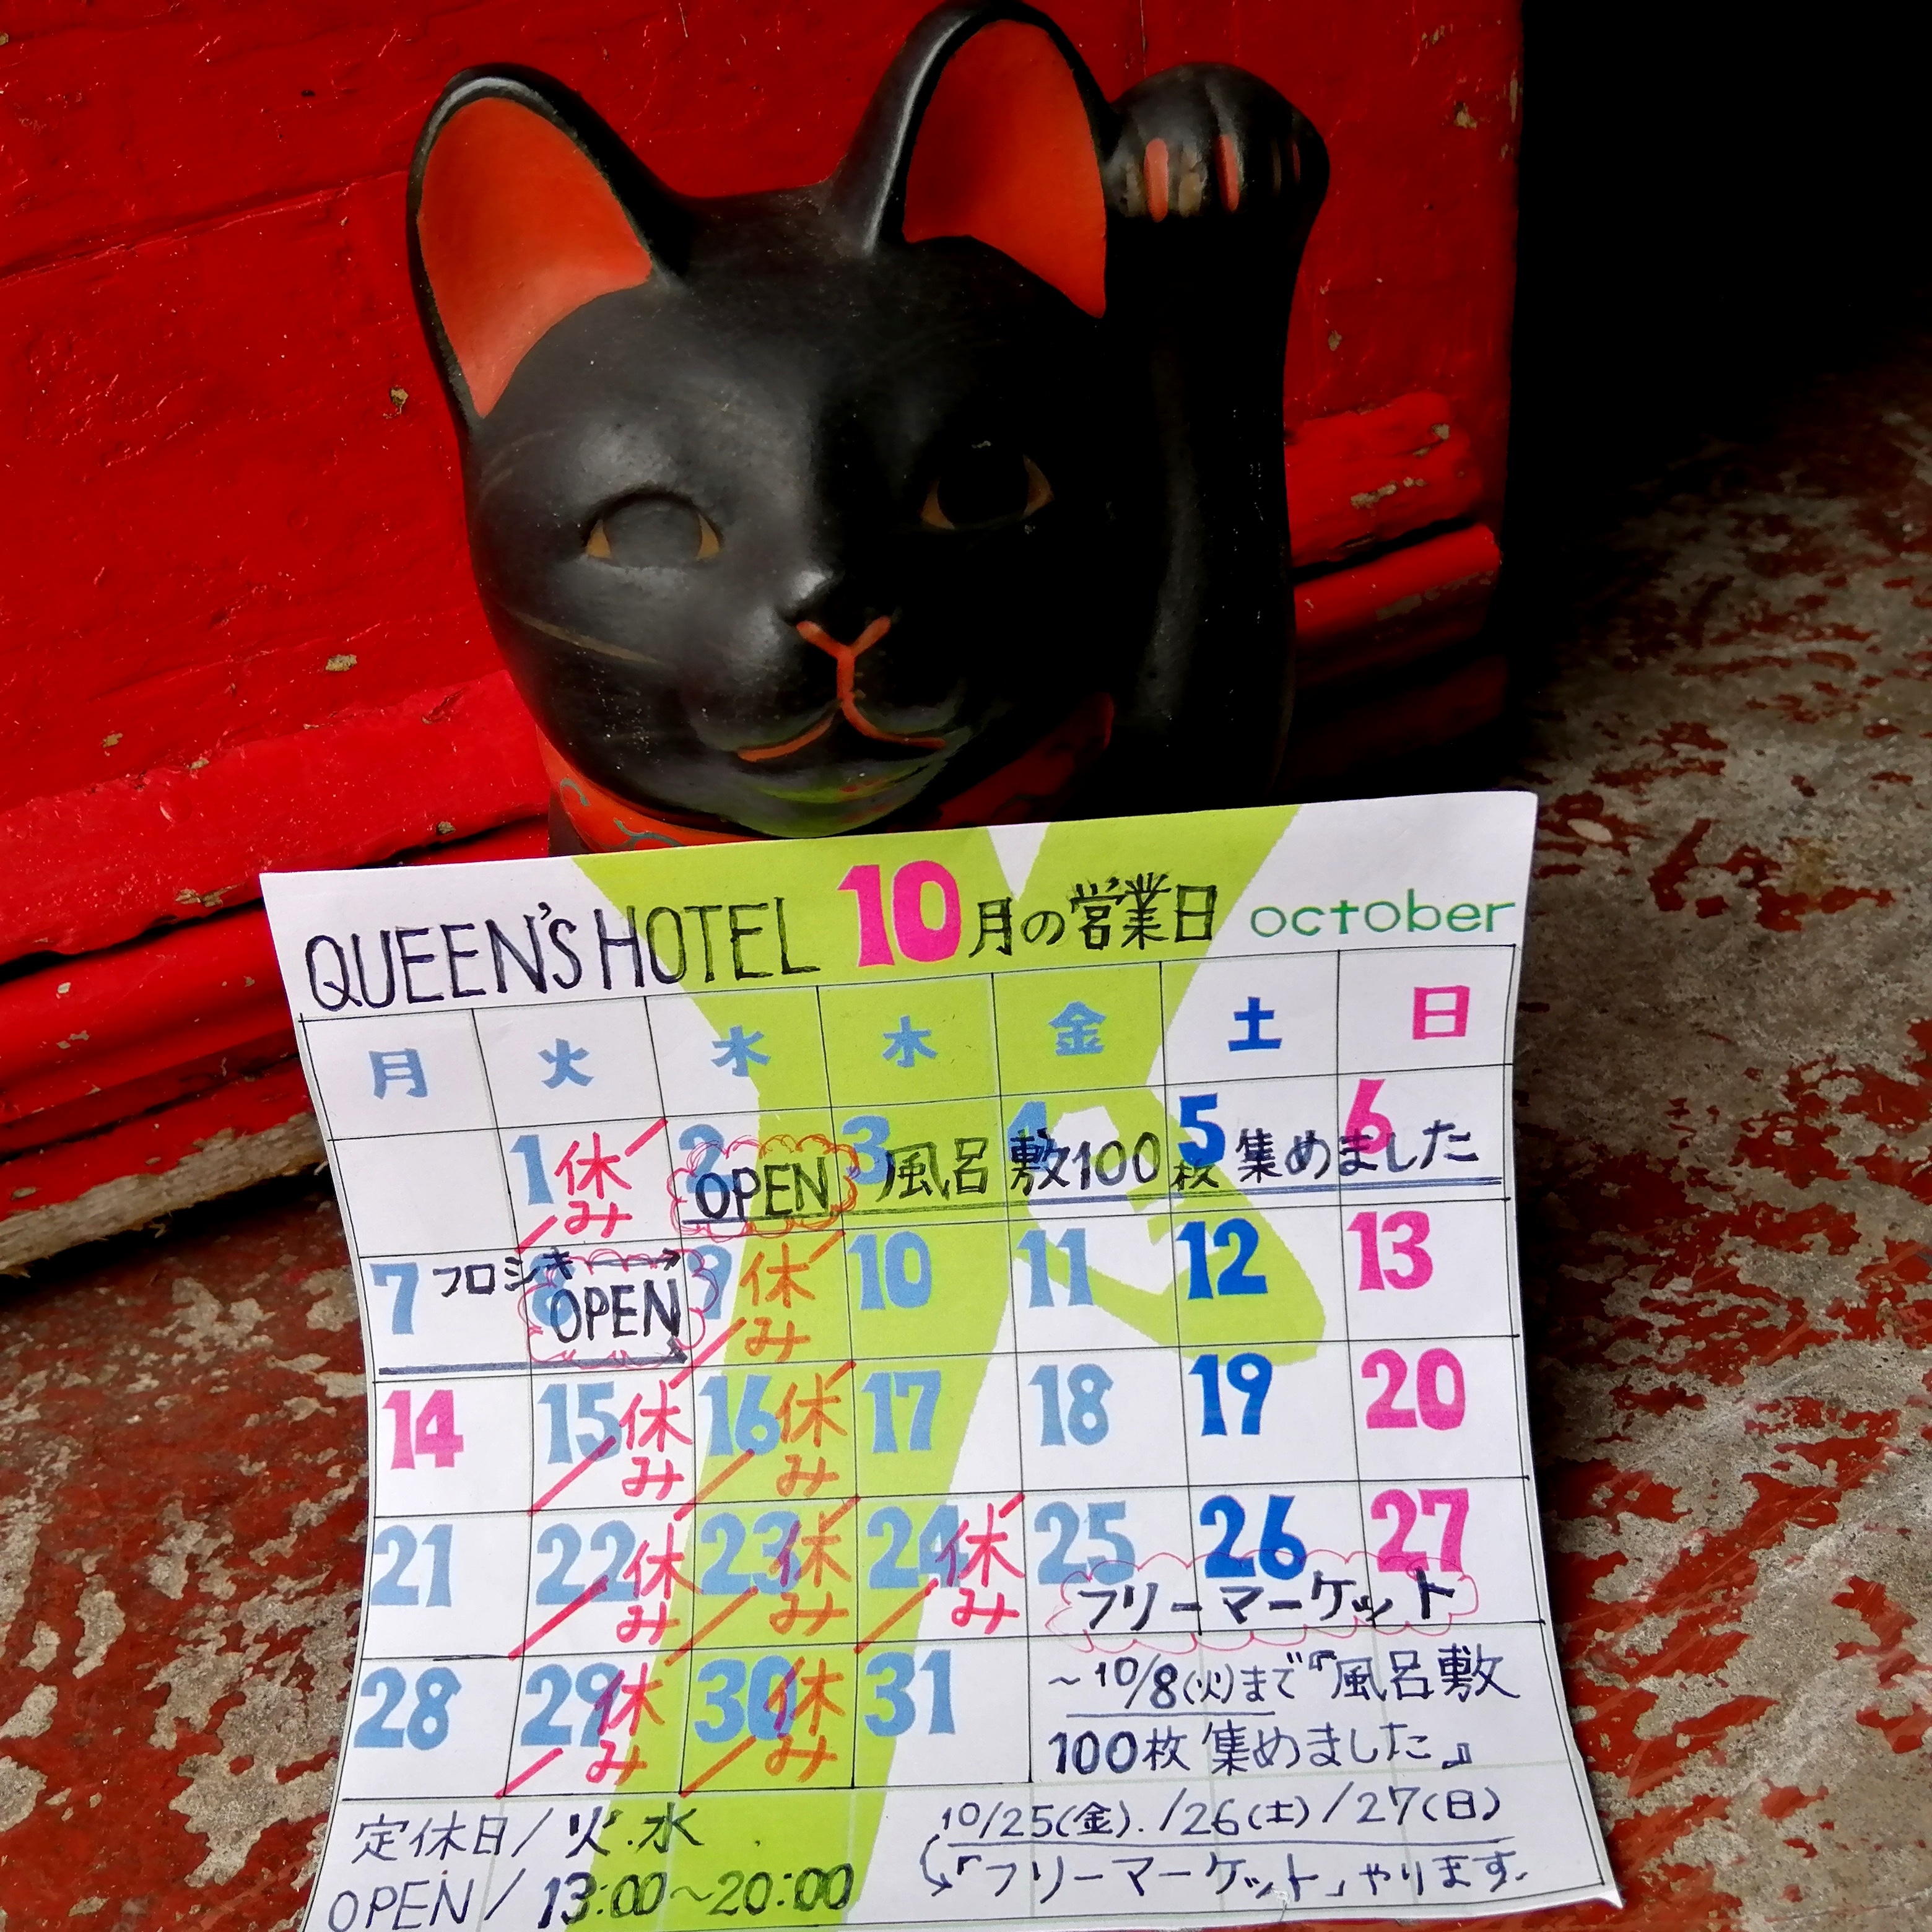 QUEEN'S HOTEL 10月の営業日 october
月 火 水 木 金 土 日
1 休み 2 OPEN 3 4 5 6
風呂敷100枚集めました
7 フロシキ 8 OPEN 9 休み 10 11 12 13
14 15 休み 16 休み 17 18 19 20
21 22 休み 23 休み 24 休み 25 26 27
フリーマーケット
28 29 休み 30 休み 31
~10/8(火)まで『風呂敷
100枚集めました』
定休日/火.水
OPEN/13:00~20:00
10/25(金)./26(土)/27(日)
「フリーマーケット」やります.